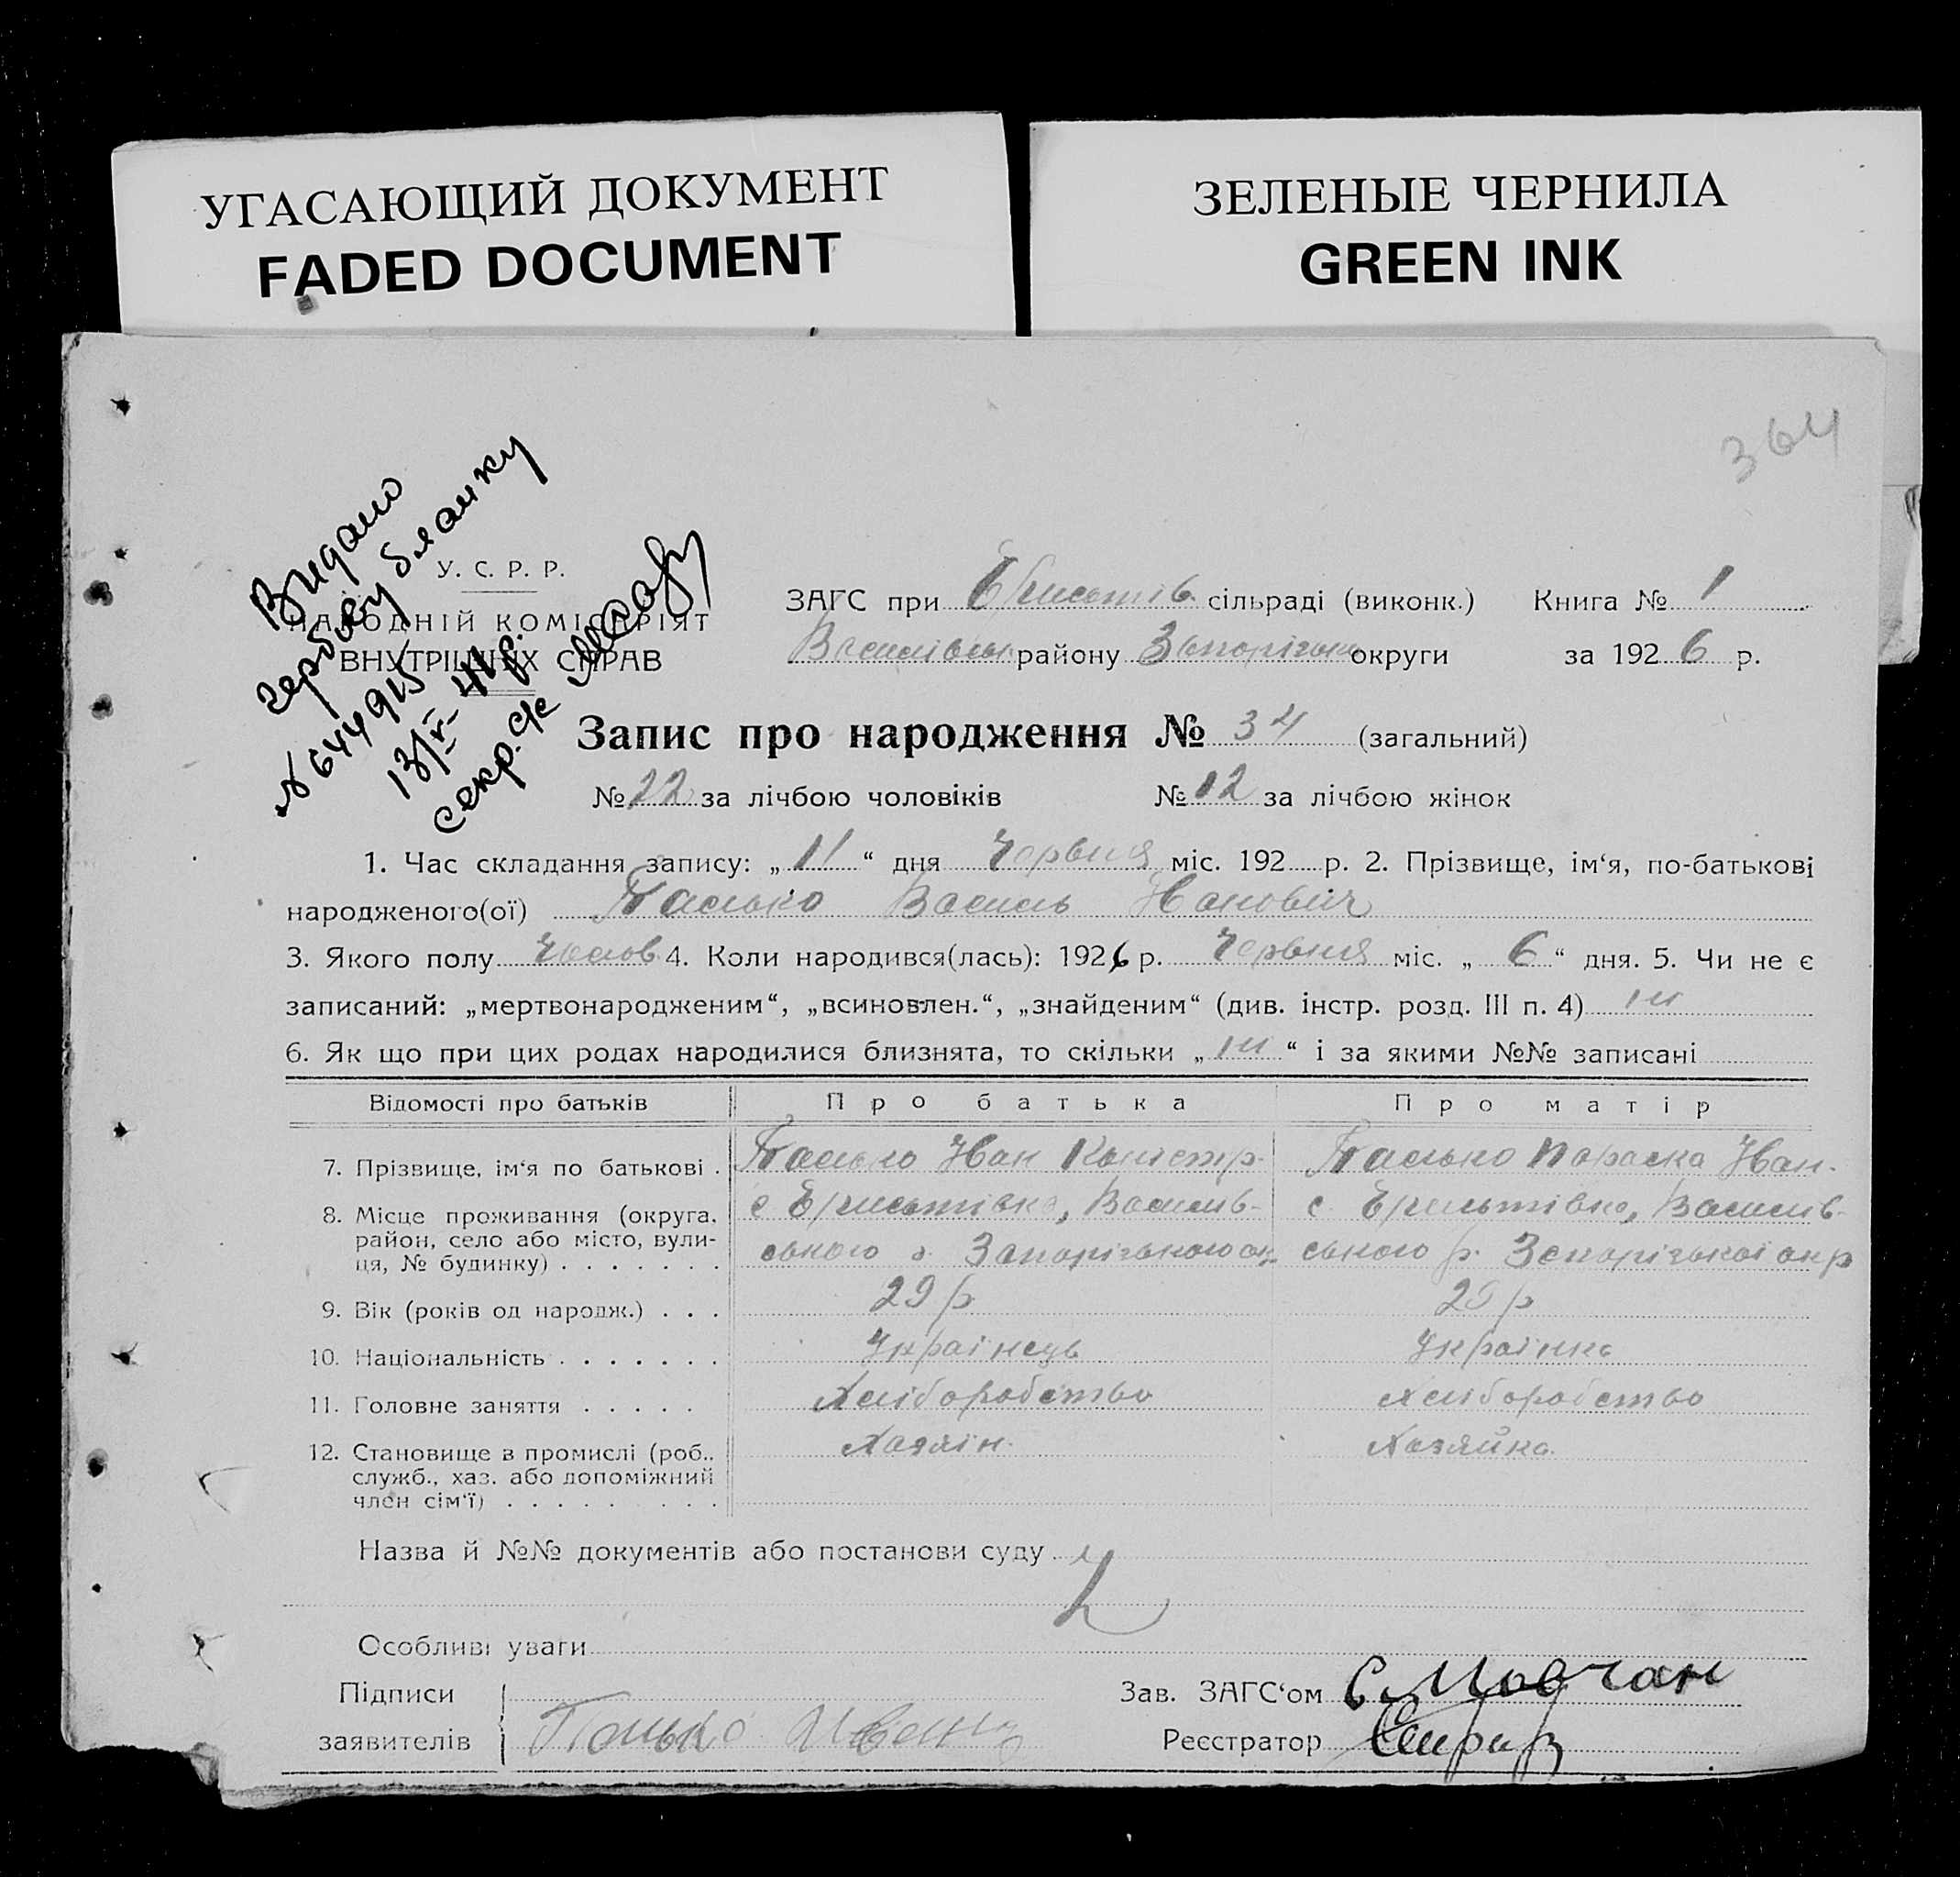 УГАСАЮЩИЙ ДОКУМЕНТ
FADED DOCUMENT
ЗЕЛЕНЫЕ ЧЕРНИЛА
GREEN INK
364
Видано
гербову бланку
№ 644915
13/V- 41 р.
секр. с/с
У. С. Р. Р.
НАРОДНІЙ КОМІСАРІЯТ
ВНУТРІШНІХ СПРАВ
ЗАГС при сільраді (виконк.) Книга № 1
Василівськ району Запорізьк округи за 1926 р.
Запис про народження № 34 (загальний)
№ 22 за лічбою чоловіків № 12 за лічбою жінок
1. Час складання запису: „ 11 “ дня Червня міс. 192 р. 2. Прізвище, ім‘я, по-батькові
народженого(ої) Василь Іванович
3. Якого полу Чолов. 4. Коли народився(лась): 1926 р. Червня міс. „ 6 “ дня. 5. Чи не є
записаний: „мертвонародженим“, „всиновлен.“, „знайденим“ (див. інстр. розд. III п. 4) ні
6. Як що при цих родах народилися близнята, то скільки „ ні “ і за якими №№ записані
Відомості про батьків Про батька Про матір
7. Прізвище, ім‘я по батькові . Іван Параска Іван.
8. Місце проживання (округа, с Василів- с. Василів-
район, село або місто, вули- ського р. Запорізького ок. ського р. Запорізької окр
ця, № будинку) . . . . . . .
9. Вік (років од народж.) . . . 29 р р
10. Національність . . . . . . . Українець Українка
11. Головне заняття . . . . . Хліборобство Хліборобство
12. Становище в промислі (роб., Хазяїн. Хозяйка.
служб., хаз. або допоміжний
член сім‘ї) . . . . . . . . .
Назва й №№ документів або постанови суду
Особливі уваги
Підписи Зав. ЗАГС‘ом С. Мовчан
заявителів Реєстратор